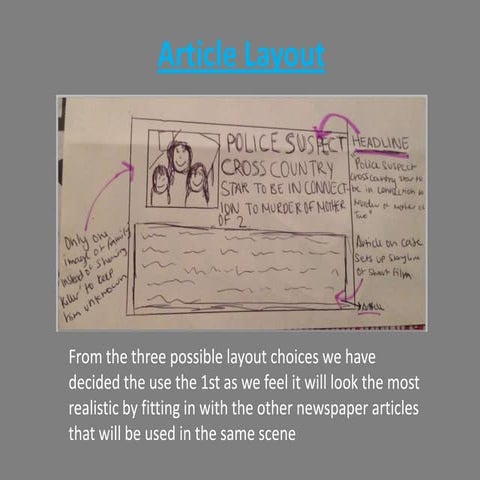 Article Layout
POLICE SUSPECT
CROSS COUNTRY
STAR TO BE IN CONNECT-
ION TO MURDER OF MOTHER
OF 2
HEADLINE
"Police suspect
cross country star to
be in connection to
Murder of mother of
Two"
Only one
image of family
instead of showing
killer to keep
him unknown
Article on case
sets up storyline
of short film
Article
From the three possible layout choices we have
decided the use the 1st as we feel it will look the most
realistic by fitting in with the other newspaper articles
that will be used in the same scene